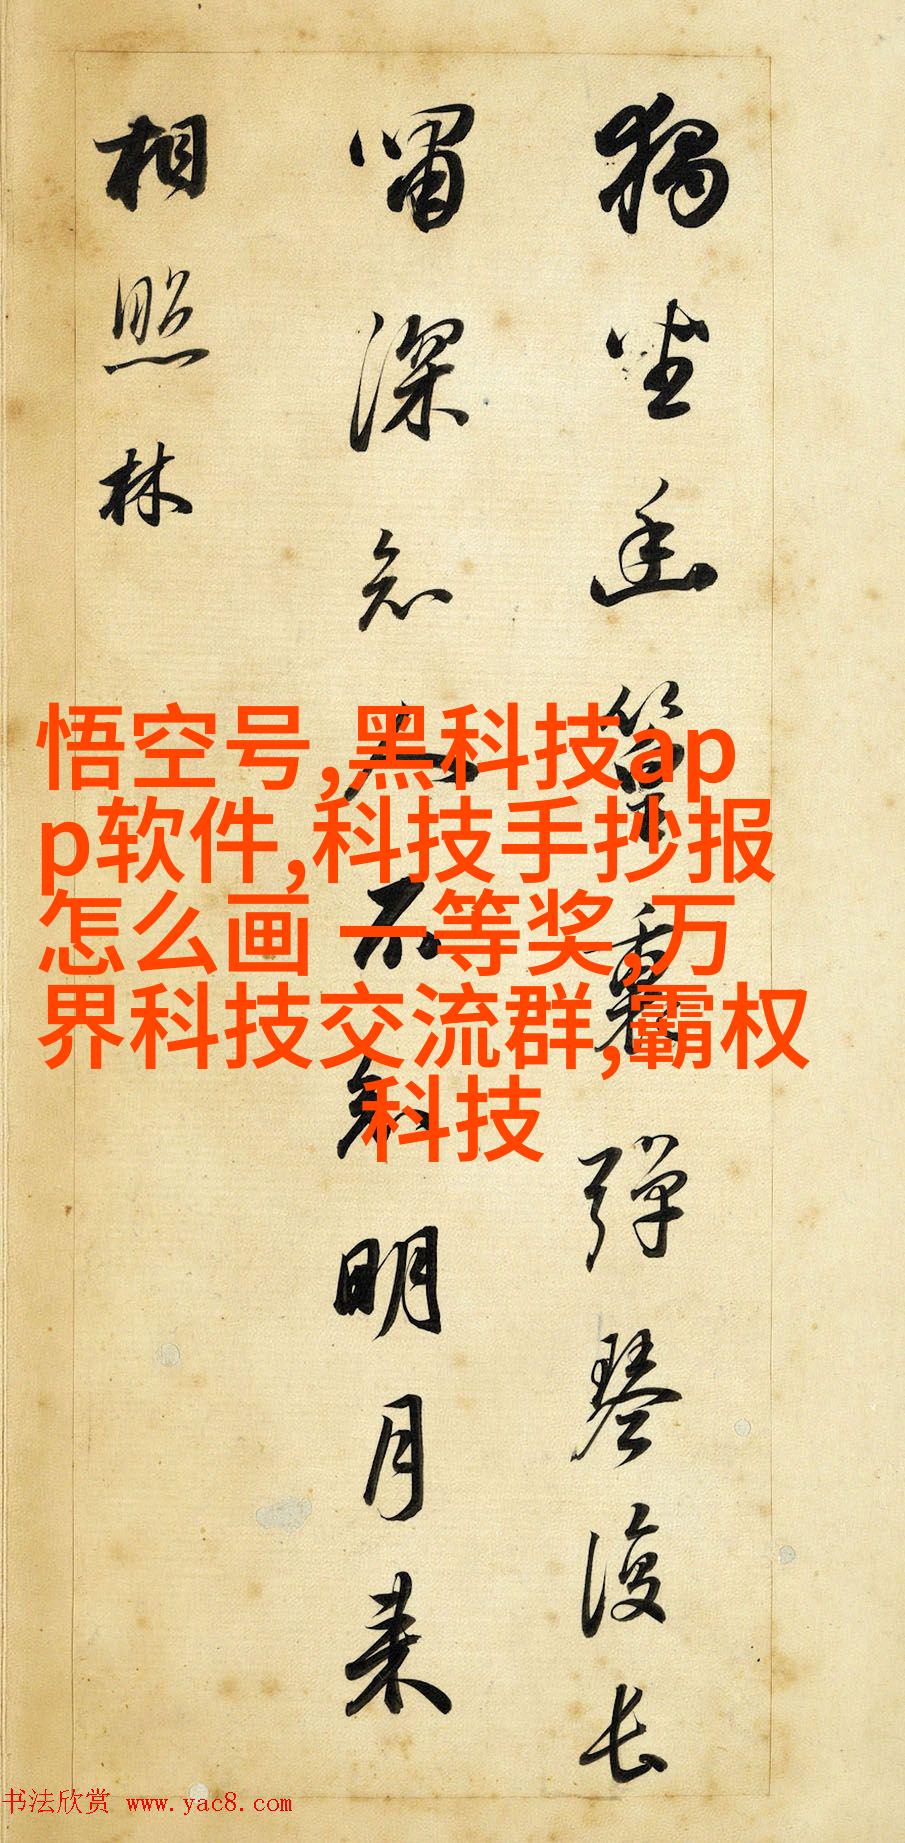 獨坐幽篁裏彈琴復長
嘯深知人不知明月来
相照林
悟空号,黑科技ap
p软件,科技手抄报
怎么画 一等奖,万
界科技交流群,霸权
科技
书法欣赏 www.yac8.com